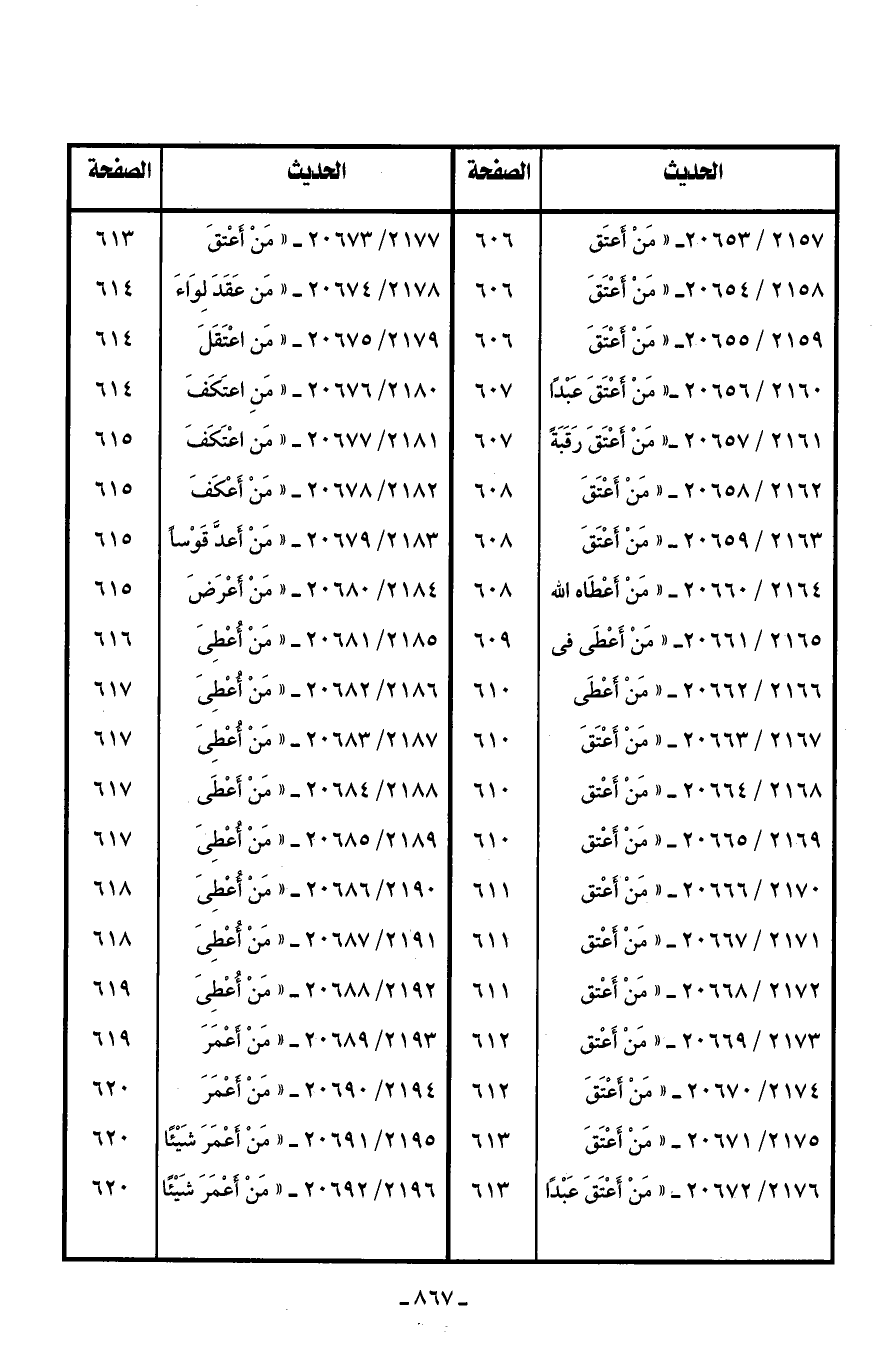 الحديث الصفحة الحديث الصفحة
٢١٥٧ / ٢٠٦٥٣ـ « مَنْ أَعتَق ٦٠٦ ٢١٧٧/ ٢٠٦٧٣ ـ « مَنْ أَعْتقَ ٦١٣
٢١٥٨ / ٢٠٦٥٤ـ « مَنْ أَعْتَقَ ٦٠٦ ٢١٧٨/ ٢٠٦٧٤ ـ « مَن عَقَدَ لِوَاءَ ٦١٤
٢١٥٩ / ٢٠٦٥٥ـ « مَنْ أَعْتَقَ ٦٠٦ ٢١٧٩/ ٢٠٦٧٥ ـ « مَن اعْتَقَلَ ٦١٤
٢١٦٠ / ٢٠٦٥٦ ـ« مَنْ أَعْتَقَ عَبْدًا ٦٠٧ ٢١٨٠/ ٢٠٦٧٦ ـ « مَنِ اعتَكَفَ ٦١٤
٢١٦١ / ٢٠٦٥٧ ـ« مَنْ أَعْتَقَ رَقَبَةً ٦٠٧ ٢١٨١/ ٢٠٦٧٧ ـ « مَن اعْتَكَفَ ٦١٥
٢١٦٢ / ٢٠٦٥٨ ـ « مَنْ أَعْتَقَ ٦٠٨ ٢١٨٢/ ٢٠٦٧٨ ـ « مَنْ أَعْكَفَ ٦١٥
٢١٦٣ / ٢٠٦٥٩ ـ « مَنْ أَعْتَقَ ٦٠٨ ٢١٨٣/ ٢٠٦٧٩ ـ « مَنْ أَعدَّ قَوْساً ٦١٥
٢١٦٤ / ٢٠٦٦٠ ـ « مَنْ أَعْطَاه الله ٦٠٨ ٢١٨٤/ ٢٠٦٨٠ ـ « مَنْ أَعْرَضَ ٦١٥
٢١٦٥ / ٢٠٦٦١ـ « مَنْ أَعْطَى فى ٦٠٩ ٢١٨٥/ ٢٠٦٨١ ـ « مَنْ أُعْطِىَ ٦١٦
٢١٦٦ / ٢٠٦٦٢ ـ « مَنْ أَعْطَى ٦١٠ ٢١٨٦/ ٢٠٦٨٢ ـ « مَنْ أُعْطِىَ ٦١٧
٢١٦٧ / ٢٠٦٦٣ ـ « مَنْ أَعْتَقَ ٦١٠ ٢١٨٧/ ٢٠٦٨٣ ـ « مَنْ أُعْطِىَ ٦١٧
٢١٦٨ / ٢٠٦٦٤ ـ « مَنْ أَعْتق ٦١٠ ٢١٨٨/ ٢٠٦٨٤ ـ « مَنْ أَعْطَى ٦١٧
٢١٦٩ / ٢٠٦٦٥ ـ « مَنْ أَعْتق ٦١٠ ٢١٨٩/ ٢٠٦٨٥ ـ « مَنْ أُعْطِىَ ٦١٧
٢١٧٠ / ٢٠٦٦٦ ـ « مَنْ أَعْتق ٦١١ ٢١٩٠/ ٢٠٦٨٦ ـ « مَنْ أُعْطِىَ ٦١٨
٢١٧١ / ٢٠٦٦٧ ـ « مَنْ أَعْتق ٦١١ ٢١٩١/ ٢٠٦٨٧ ـ « مَنْ أُعْطِىَ ٦١٨
٢١٧٢ / ٢٠٦٦٨ ـ « مَنْ أَعْتق ٦١١ ٢١٩٢/ ٢٠٦٨٨ ـ « مَنْ أُعْطِىَ ٦١٩
٢١٧٣ / ٢٠٦٦٩ ـ « مَنْ أَعْتق ٦١٢ ٢١٩٣/ ٢٠٦٨٩ ـ « مَنْ أَعْمَرَ ٦١٩
٢١٧٤/ ٢٠٦٧٠ ـ « مَنْ أَعْتَقَ ٦١٢ ٢١٩٤/ ٢٠٦٩٠ ـ « مَنْ أَعْمَرَ ٦٢٠
٢١٧٥/ ٢٠٦٧١ ـ « مَنْ أَعْتَقَ ٦١٣ ٢١٩٥/ ٢٠٦٩١ ـ « مَنْ أَعْمَرَ شَيْئًا ٦٢٠
٢١٧٦/ ٢٠٦٧٢ ـ « مَنْ أَعْتَقَ عَبْدًا ٦١٣ ٢١٩٦/ ٢٠٦٩٢ ـ « مَنْ أَعْمَرَ شَيْئًا ٦٢٠
ـ ٨٦٧ ـ